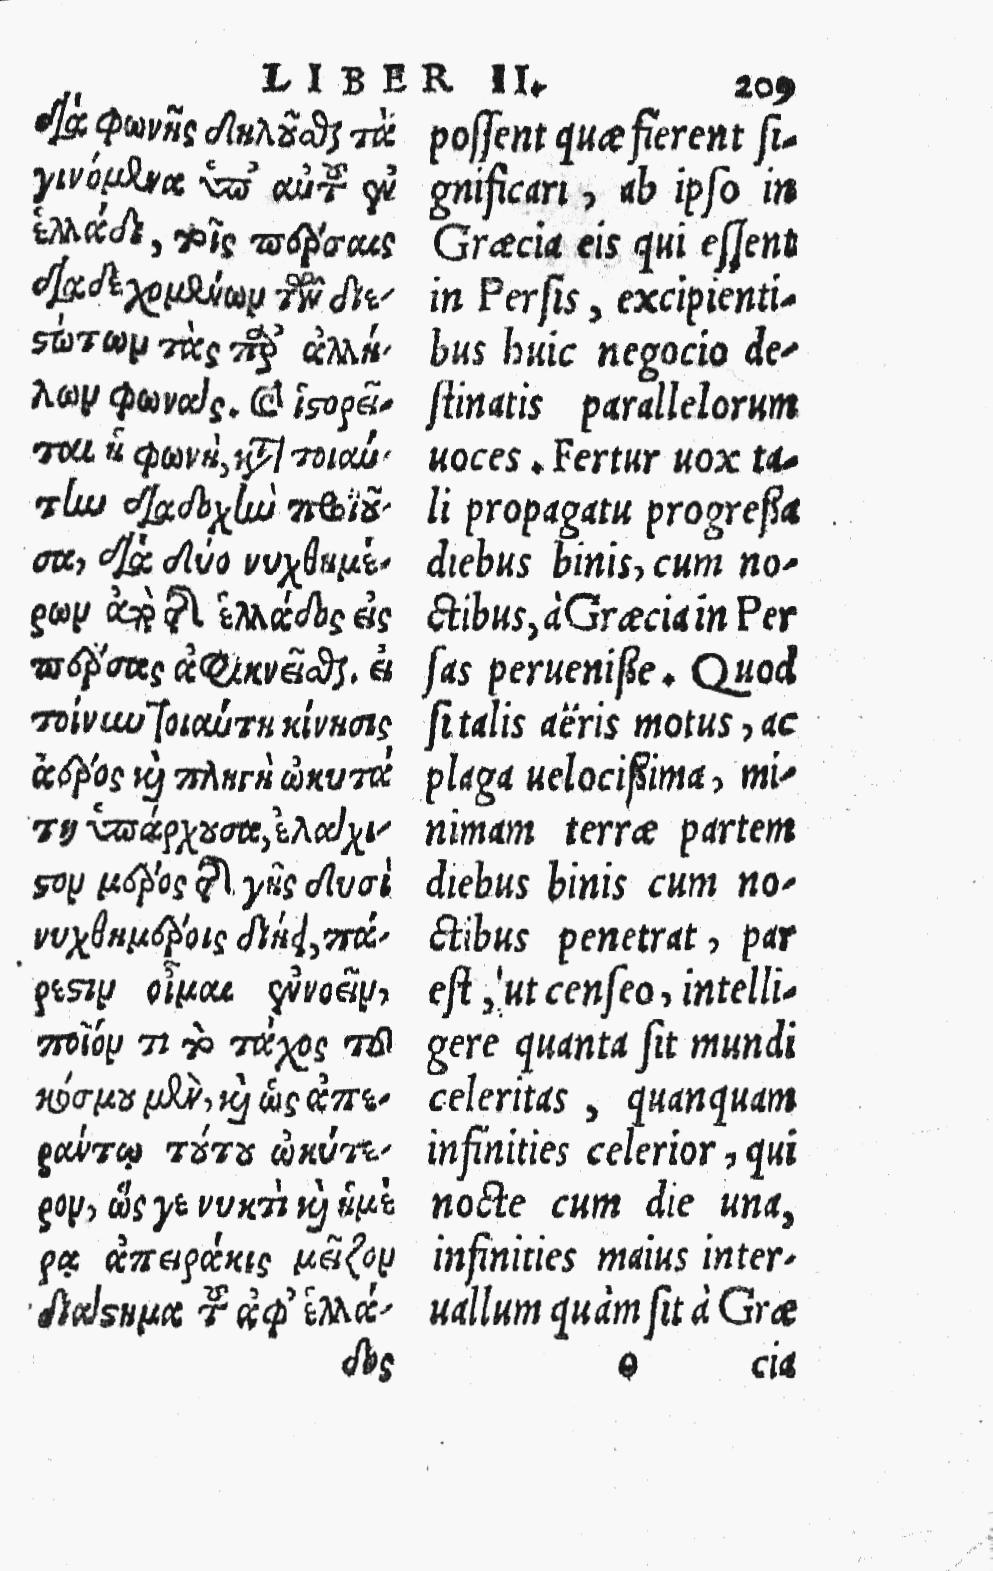 LIBER II. 209
διὰ φωνῆς δηλοῦσθαι τὰ
γινόμενα ὑπ' αὐτοῦ ἐν
ἑλλάδι, τοῖς πέρσαις
διαδεχομένων τῶν διε-
στώτων τὰς πρὸς ἀλλή-
λων φωνάς. Καὶ ἱστορεῖ-
ται ἡ φωνὴ, κατὰ τοιαύ-
την διαδοχὴν προϊοῦ-
σα, διὰ δύο νυχθημέ-
ρων ἀπὸ τῆς ἑλλάδος εἰς
πέρσας ἀφικνεῖσθαι. εἰ
τοίνυν τοιαύτη κίνησις
ἀέρος καὶ πληγὴ ὠκυτά
τη ὑπάρχουσα, ἐλάχι-
στον μέρος τῆς γῆς δυσὶ
νυχθημέροις διῄει, πά-
ρεστιν οἶμαι ἐννοεῖν,
ποῖόν τι τὸ τάχος τοῦ
κόσμου μὲν, καὶ ὡς ἀπε-
ράντῳ τούτου ὠκύτε-
ρον, ὥς γε νυκτὶ καὶ ἡμέ
ρᾳ ἀπειράκις μεῖζον
διάστημα τοῦ ἀφ' ἑλλά-
δος
possent quæ fierent si-
gnificari, ab ipso in
Græcia eis qui essent
in Persis, excipienti-
bus huic negocio de-
stinatis parallelorum
uoces. Fertur uox ta-
li propagatu progreßa
diebus binis, cum no-
ctibus, à Græcia in Per
sas perueniße. Quod
si talis aëris motus, ac
plaga uelocißima, mi-
nimam terræ partem
diebus binis cum no-
ctibus penetrat, par
est, ut censeo, intelli-
gere quanta sit mundi
celeritas, quanquam
infinities celerior, qui
nocte cum die una,
infinities maius inter-
uallum quàm sit à Græ
o cia